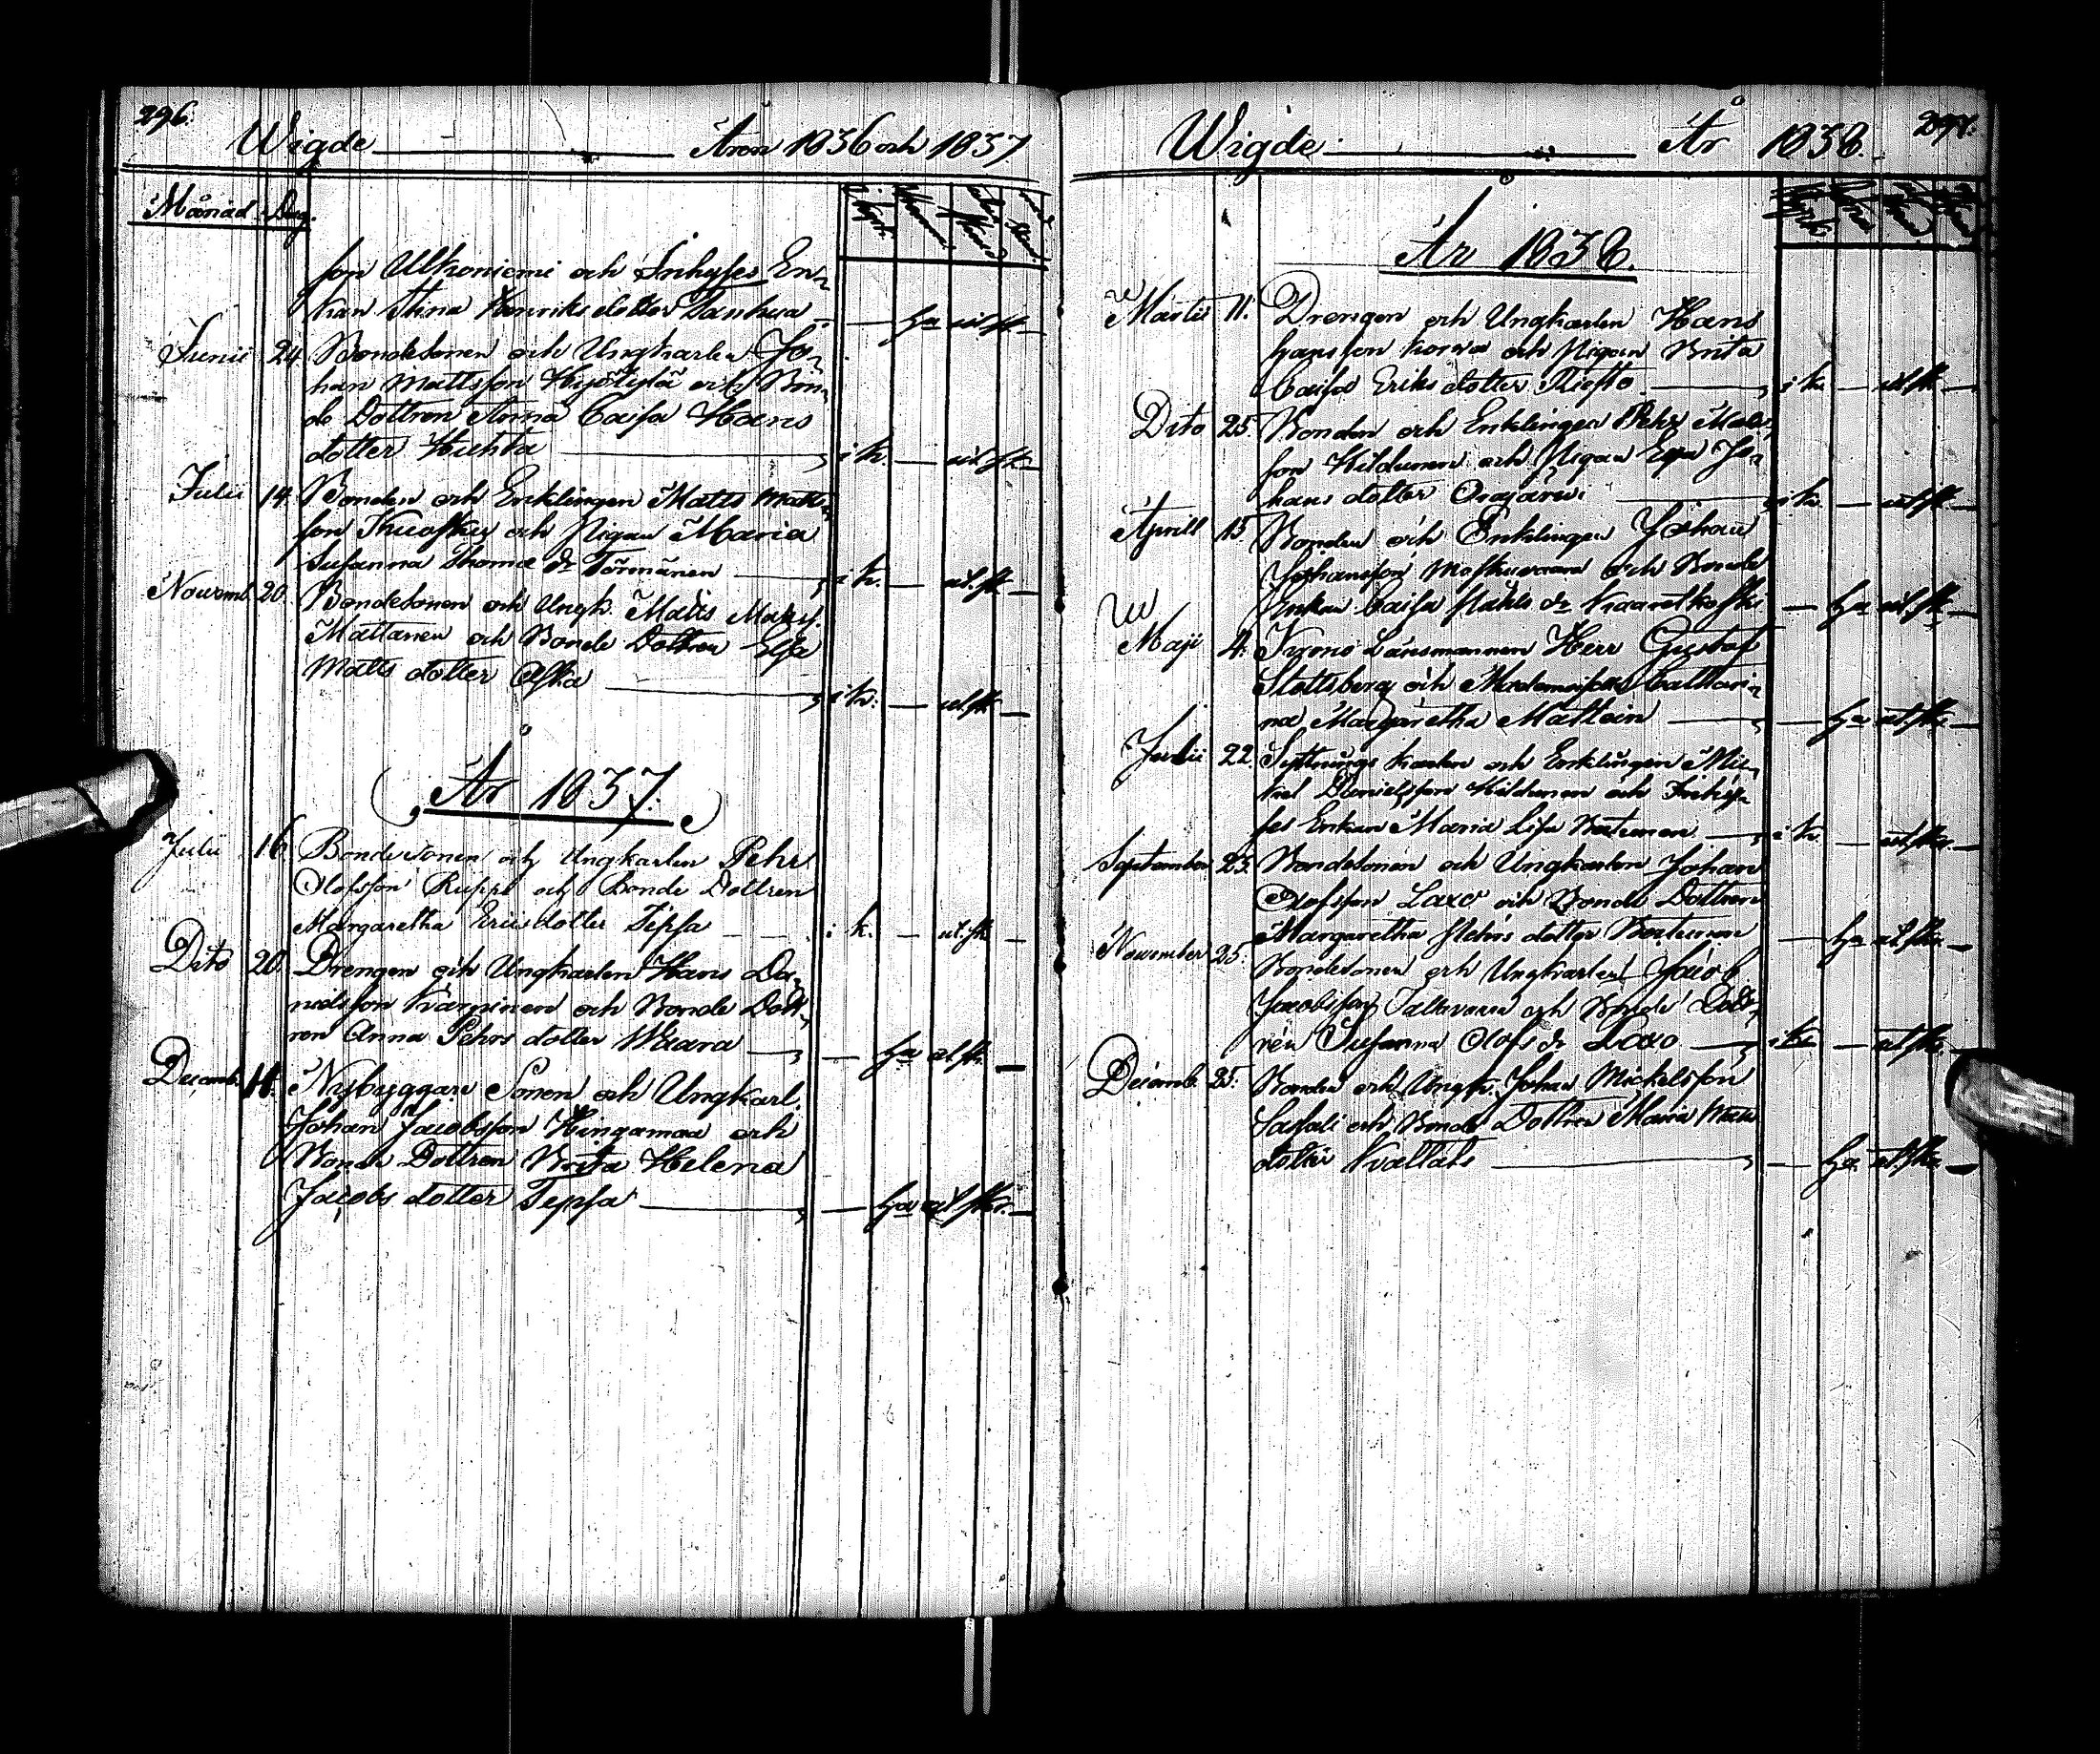 296.
Wigde Åren 1836 och 1837
Månad Dag.
son Ulkoniemi och Inhyses En-
kan Stina Henriks dotter Tanhua ha ut. sk.
Junii 24. Bondesonen och Ungkarlen Jo-
han Mattsson Hyötylä och Bon-
de Dottren Anna Caisa Hans
dotter Huhta i k. ut. sk.
Julii 14. Bonden och Enklingen Matts Matts-
son och Pigan Maria
Susanna Thomæ dr Törmänen i k. ut. sk.
Novemb. 20. Bondesonen och Ungk. Matts
Mattanen och Bonde Dottren Elsa
Matts dotter Aska i k. ut. sk.
År 1837.
Julii 16 Bondesonen och Ungkarlen Pehr
Olofsson Ruppi och Bonde Dottren
Margaretha Erics dotter Seppä i k. ut. sk.
Dito 20. Drengen och Ungkarlen Hans Da-
nielsson Karpinen och Bonde Dott-
ren Anna Pehrs dotter Waara ha ut. sk.
Decemb. Nybyggare Sonen och Ungkarl.
Johan Jacobsson Hingamaa och
Bonde Dottren Brita Helena
Jacobs dotter Seppä ha ut. skr.
297.
Wigde År 1838.
År 1838.
Martii 11. Drengen och Ungkarlen Hans
Hansson Korva och Pigan Brita
Caisa Eriks dotter i k. ut. sk.
Dito 25. Bonden och Enklingen Pehr Matts-
son Kildunen och Pigan Eva Jo-
hans dotter Orajärvi i k. ut. sk.
Aprill 15 Bonden och Enklingen Johan
Johansson Moskuvaara och Bonde
Enkan Caisa Pehls dr ha ut. sk.
Maji 4. Krono Länsmannen Herr Gustaf
Stoltsberg och Mademoisell Cathari-
na Margaretha Mattein ha ut. sk.
Julii 22. Syttnings karlen och Enklingen Mic-
kel Danielsson Kildunen och Inhy-
ses Enkan Maria Lisa i k. ut. sk.
September 23. Bondesonen och Ungkarlen Johan
Olofsson Laxo och Bonde Dottren
Margaretha Pehrs dotter ha ut. sk.
November 25. Bondesonen och Ungkarlen Jacob
Jacobsson och Bonde Dott-
ren Susanna Olofs dr Laxo i k. ut. sk.
Decemb. 25. Bonden och Ungk. Johan Mickelsson
och Bonde Dottren Maria Matts
dotter ha ut. sk.